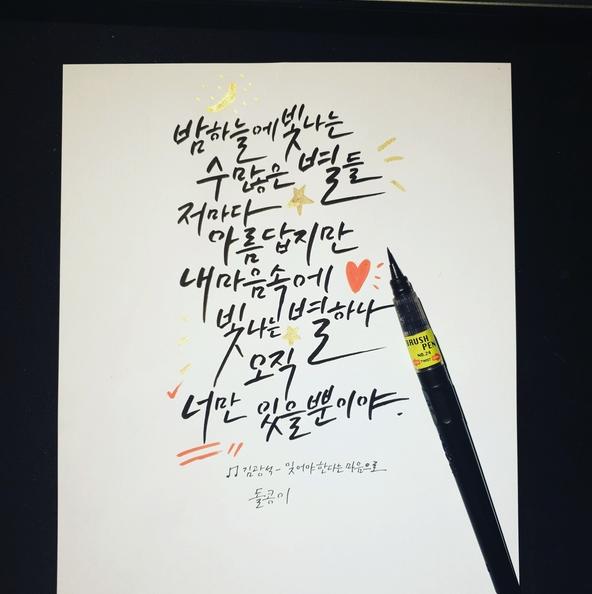 밤하늘에 빛나는
수많은 별들
저마다
아름답지만
내 마음속에
빛나는 별 하나
오직
너만 있을 뿐이야.
♫ 김광석 - 잊어야 한다는 마음으로
돌콩이
BRUSH
PEN
NO.24